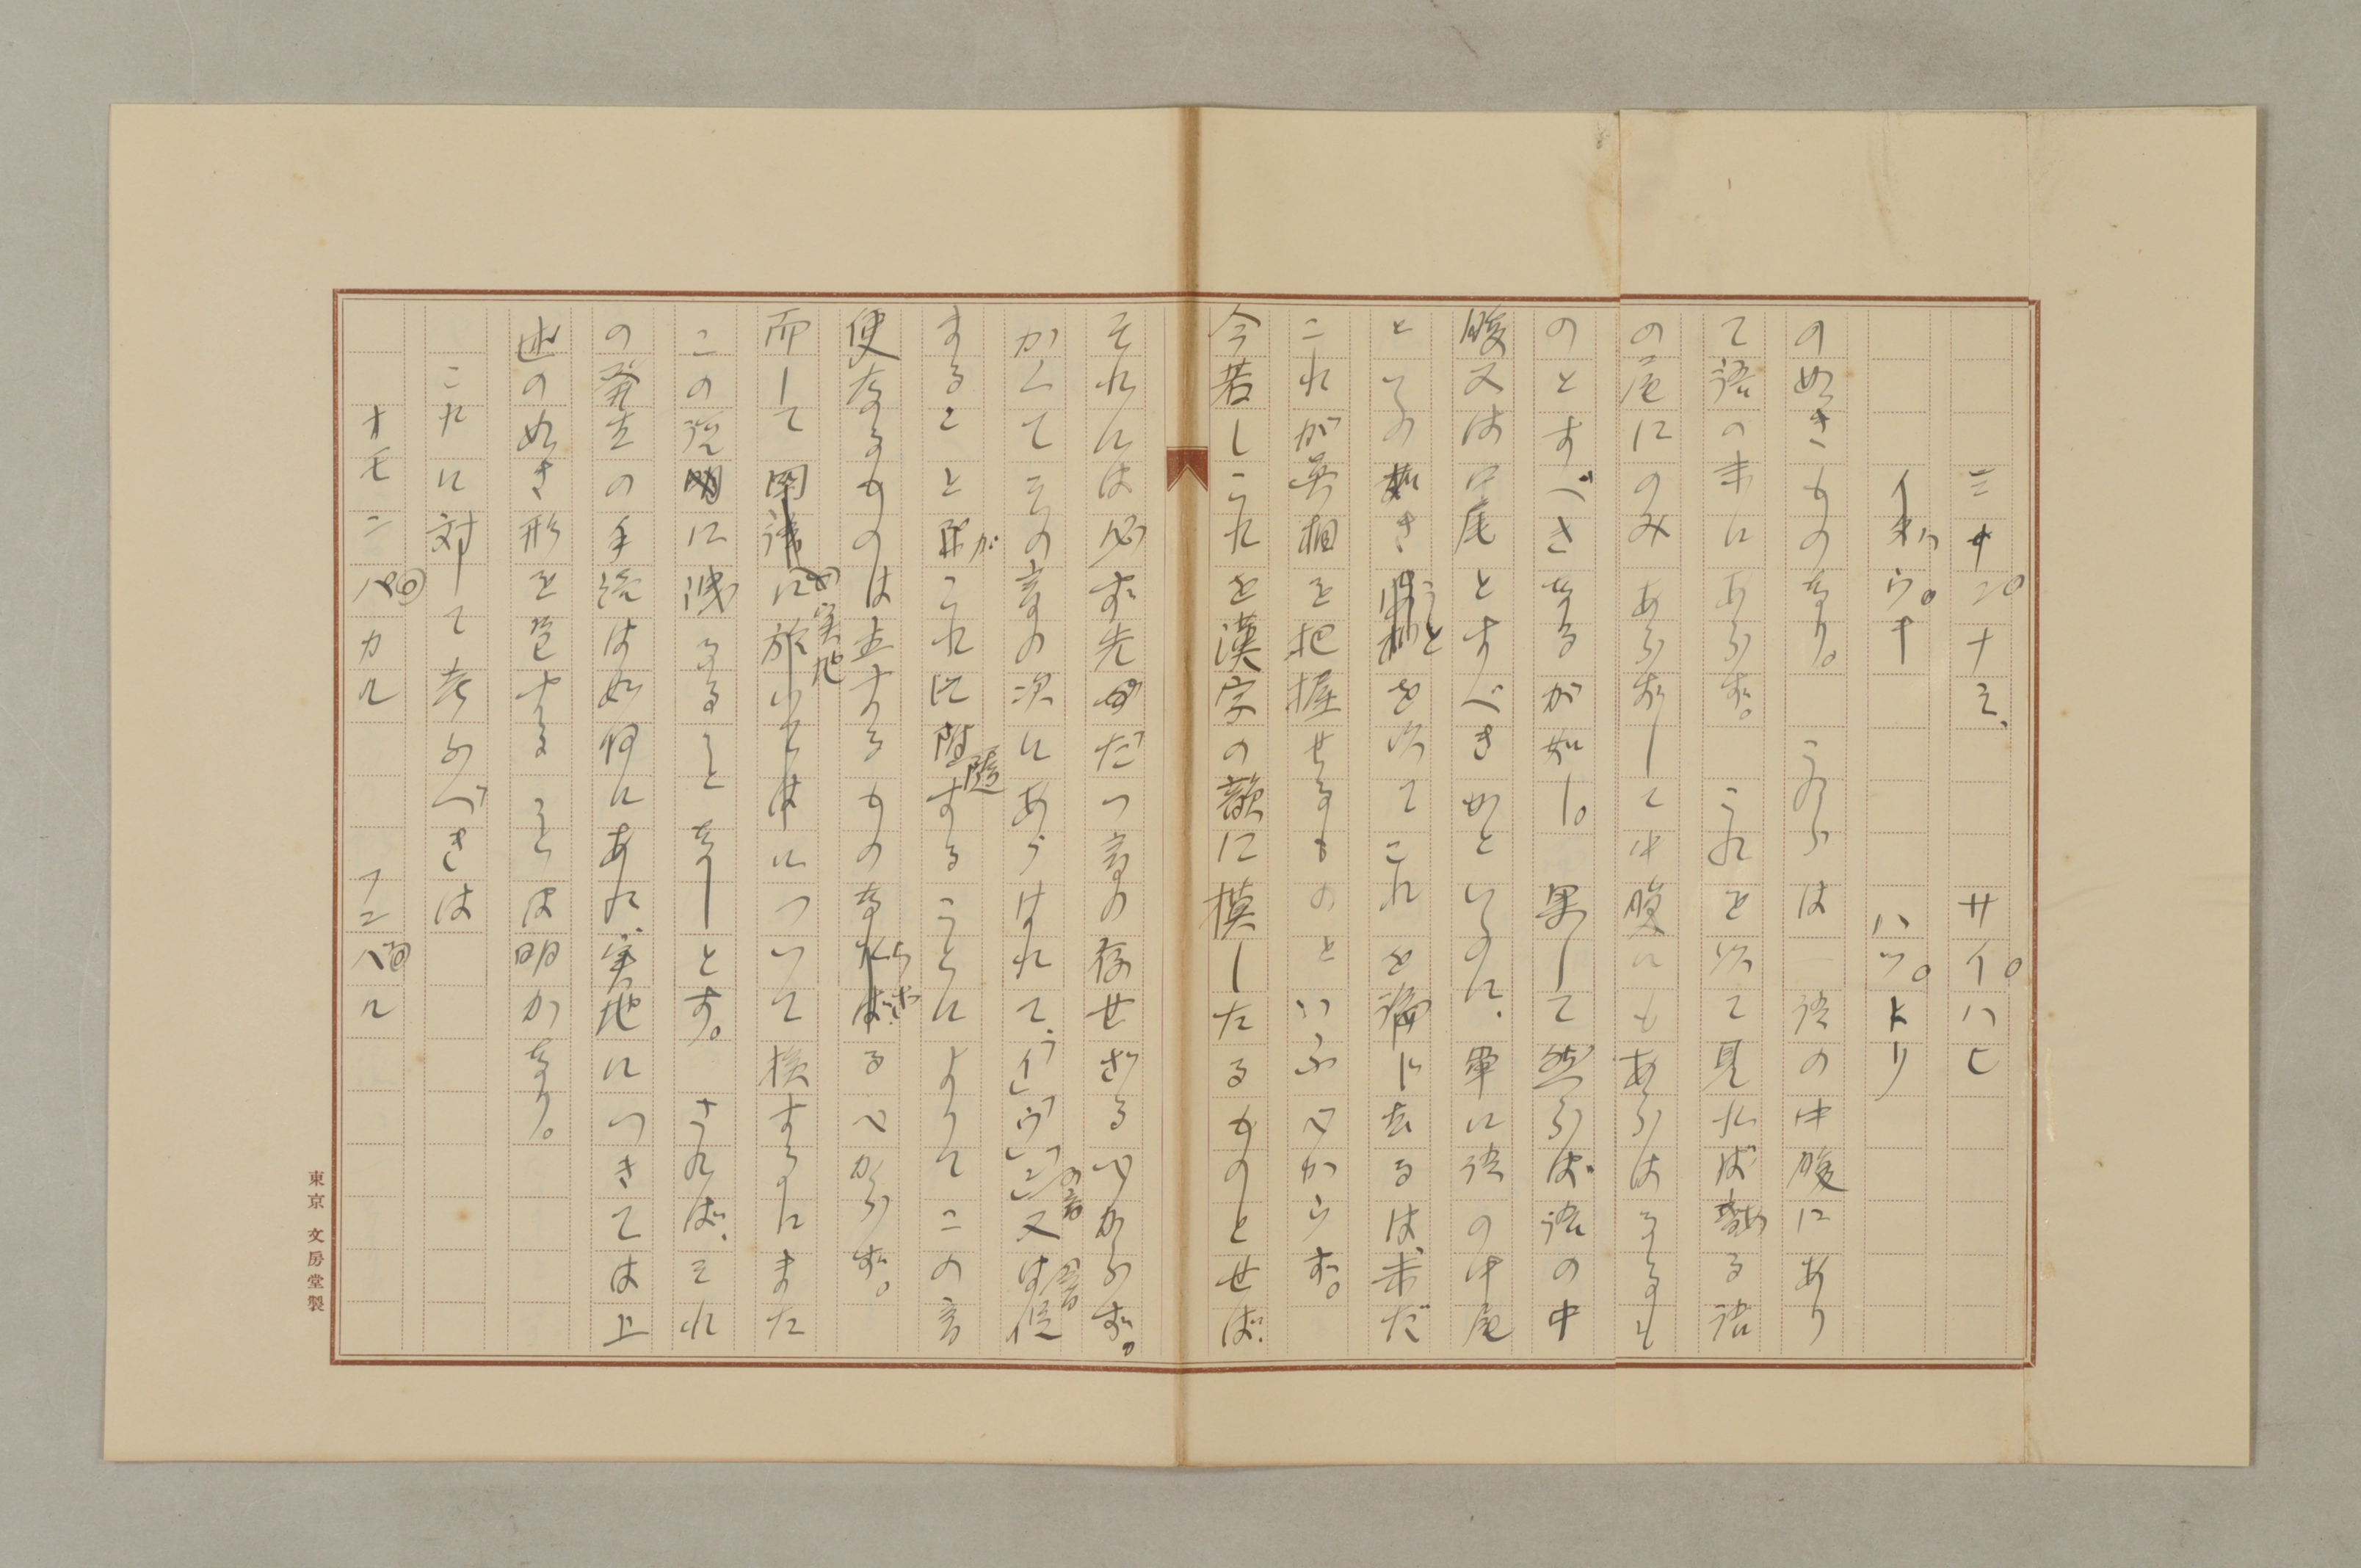 ミナン。ナミ、　サイ。ハヒ
ウ。ナ　ハツ。より
の如きものなり。これらは一語の中腹にあり
て語の末にあらず。これを以て見れば る語
の尾にのみあらずして中腹にもあらはるるも
のとすべきなるが如し。果して然らば語の中
腹又は中尾とすべきかといふに、単に語の中尾
といふ如きことを以てこれを論じ去るは、未だ
これが真相を把握せるものといふべからず。
今若しこれを漢字の韻に模したるものとせば、
それには必ず先だつ音の存せざるべからず。
かくてその音の次にあらはれて、「イ」「ウ」「ン」の音又は促音
することが これに附随することによりてこの音
便なるものは生ずるものならざるべからず。
而して 実地 について検するにまた
この説明に洩るることなしとす。されば、それ
の発生の手続は如何にあれ、実地につきては上
述の如き形を呈することは明かなり。
これに対して考ふべきは
ナモンパカル　アンバル
東京 文房堂製